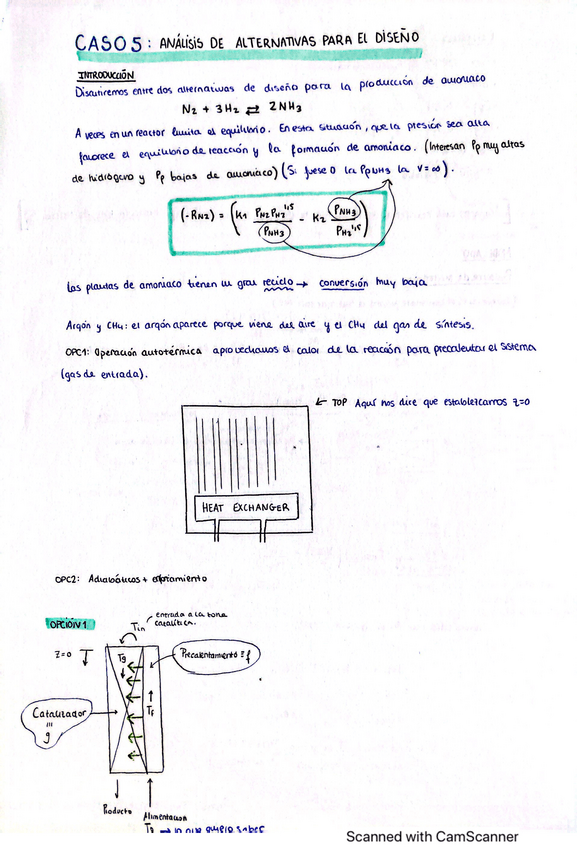 CASO 5: ANÁLISIS DE ALTERNATIVAS PARA EL DISEÑO
INTRODUCCIÓN
Discutiremos entre dos alternativas de diseño para la producción de amoniaco
N2 + 3H2 ⇄ 2NH3
A veces en un reactor limita el equilibrio. En esta situación, que la presión sea alta
favorece el equilibrio de reacción y la formación de amoniaco. (Interesan Pp muy altas
de hidrógeno y Pp bajas de amoniaco) (Si fuese 0 la PpNH3 la V=∞).
(-RN2) = (K1 PN2 PH2^1,5 / PNH3 - K2 PNH3 / PH2^1,5)
Las plantas de amoniaco tienen un gran reciclo → conversión muy baja
Argón y CH4: el argón aparece porque viene del aire y el CH4 del gas de síntesis.
OPC1: Operación autotérmica aprovechamos el calor de la reacción para precalentar el sistema
(gas de entrada).
← TOP Aquí nos dice que establezcamos z=0
HEAT EXCHANGER
OPC2: Adiabáticos + enfriamiento
OPCIÓN 1
Tin
entrada a la zona
catalítica.
z=0
Tg
Precalentamiento ≡ f
Tf
Catalizador
≡
g
Producto
Alimentación
T0 → lo que quiero saber
Scanned with CamScanner